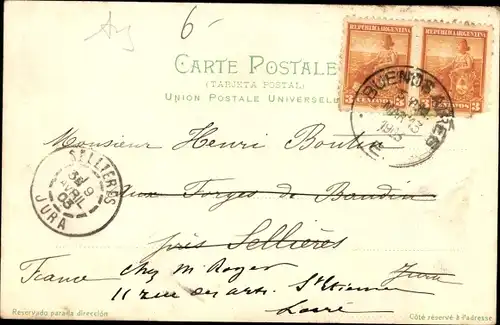 Arg
6
REPUBLICA ARGENTINA REPUBLICA ARGENTINA
3 CENTAVOS 3 CENTAVOS 3
CARTE POSTALE
(TARJETA POSTAL)
UNION POSTALE UNIVERSELLE
BUENOS AIRES
1903
Monsieur Henri Boulin
SELLIERES
9
AVRIL
03
JURA
aux Forges de Baudin
près Sellières
France chez M. Roger St Etienne Jura
11 rue des arts. Loire
Reservado para la dirección
Côté réservé à l'adresse